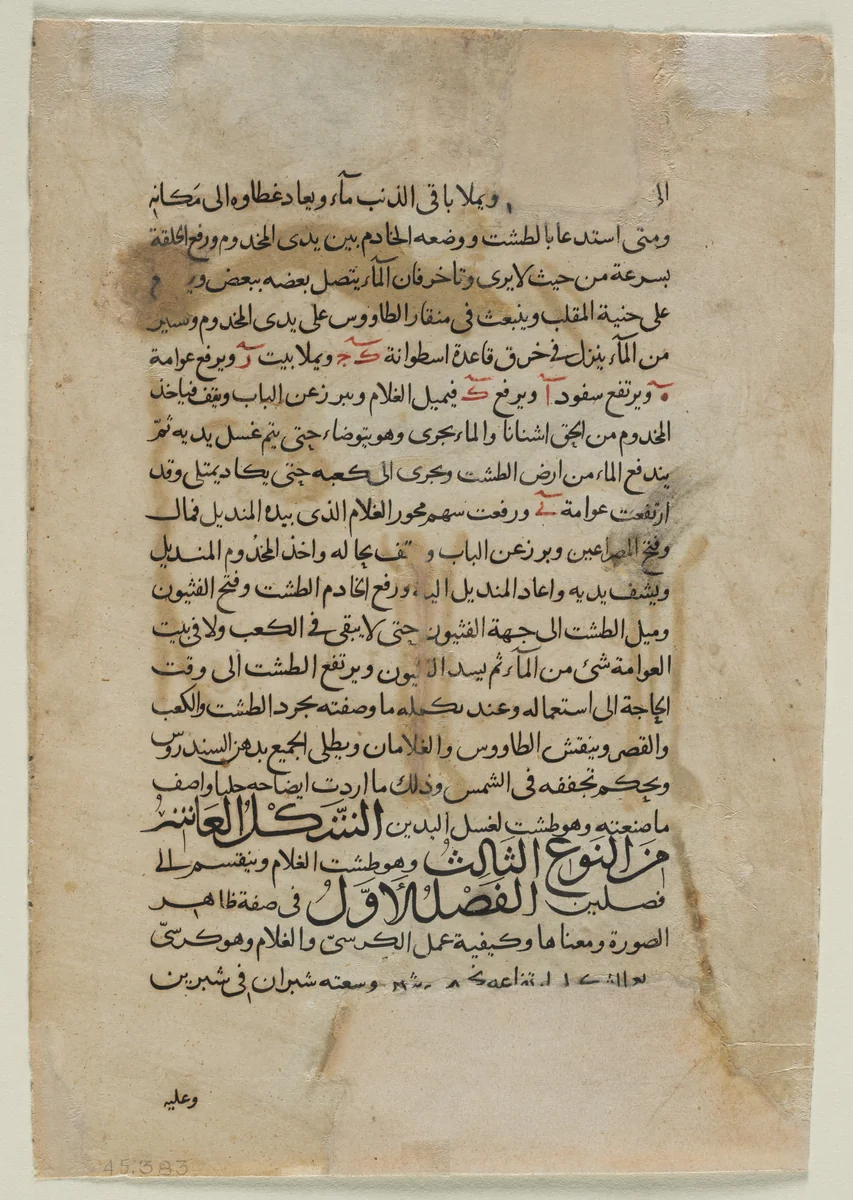 الى ويملا باقى الذنب مآء ويعاد غطاوه الى مكانه
ومتى استدعا بالطشت ووضعه الخادم بين يدى المخدوم ورفع الحلقة
بسرعة من حيث لا يرى وتاخر فان المآء يتصل بعضه ببعض
على حنية المقلب وينبعث فى منقار الطاووس على يدى المخدوم ويسير
من المآء ينزل فى خرق قاعدة اسطوانة ويملا بيت ويرفع عوامة
ويرتفع سفود ويرفع فيميل الغلام ويبرز عن الباب ويقف فياخذ
المخدوم من الحق اشنانا والماء يجرى وهو يتوضاء حتى يتم غسل يديه ثم
يندفع الماء من ارض الطشت ويجرى الى كعبه حتى يكاد يمتلى وقد
ارتفعت عوامة ورفعت سهم محور الغلام الذى بيده المنديل فمال
وفتح المصراعين وبرز عن الباب بحاله واخذ المخدوم المنديل
ونشف يديه واعاد المنديل اليه ورفع الخادم الطشت وفتح الفثيون
وميل الطشت الى جهة الفثيون حتى لا يبقى فى الكعب ولا فى بيت
العوامة شئ من المآء ثم يسد الفثيون ويرتفع الطشت الى وقت
الحاجة الى استعماله وعند تكمله ما وصفته يجرد الطشت والكعب
والقصر وينقش الطاووس والغلامان ويطلى الجميع بدهن السندروس
ويحكم تجفيفه فى الشمس وذلك ما اردت ايضاحه جليا واصف
ما صنعته وهو طشت لغسل اليدين الشكل العاشر
من النوع الثالث وهو طشت الغلام وينقسم الى
فصلين الفصل الاول فى صفة ظاهر
الصورة ومعناها وكيفية عمل الكرسى والغلام وهو كرسى
وسعته شبران فى شبرين
وعليه
45.383